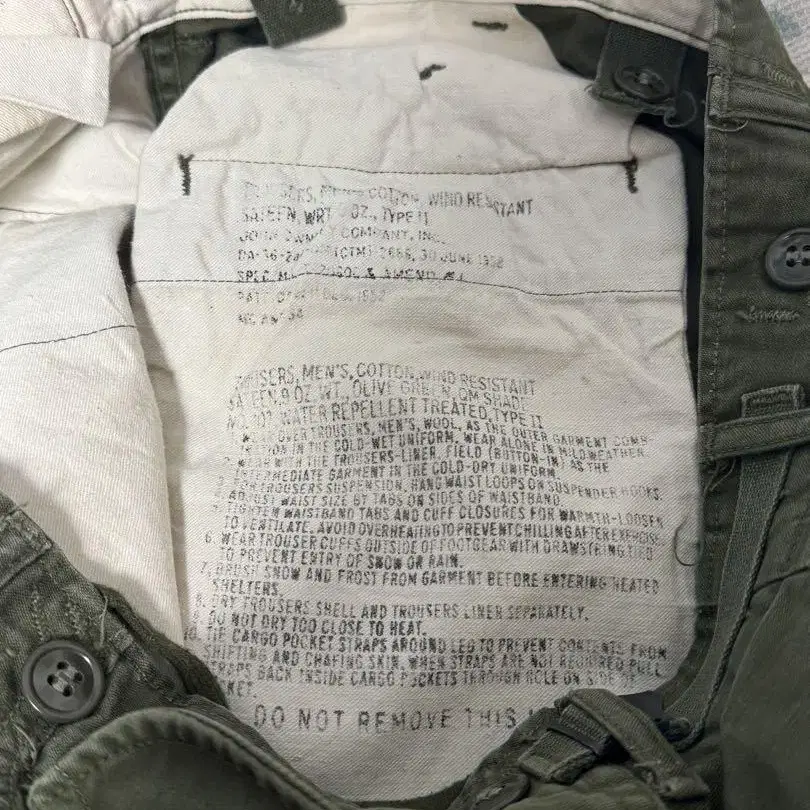 COTTON, WIND RESISTANT
SATEEN, WRT OZ., TYPE II
COMPANY, INC.
30 JUNE 1952
SPEC. & AMEND
1952
TROUSERS, MEN'S, COTTON, WIND RESISTANT
SATEEN, 9 OZ. WT., OLIVE GREEN, QM SHADE
NO. 107, WATER REPELLENT TREATED, TYPE II
1. WEAR OVER TROUSERS, MEN'S, WOOL, AS THE OUTER GARMENT COMB-
INATION IN THE COLD-WET UNIFORM. WEAR ALONE IN MILD WEATHER.
2. WEAR WITH THE TROUSERS-LINER, FIELD (BUTTON-IN) AS THE
INTERMEDIATE GARMENT IN THE COLD-DRY UNIFORM.
TROUSERS SUSPENSION, HANG WAIST LOOPS ON SUSPENDER HOOKS.
4. ADJUST WAIST SIZE BY TABS ON SIDES OF WAISTBAND.
5. TIGHTEN WAISTBAND TABS AND CUFF CLOSURES FOR WARMTH-LOOSEN
TO VENTILATE. AVOID OVERHEATING TO PREVENT CHILLING AFTER EXERCISE.
6. WEAR TROUSER CUFFS OUTSIDE OF FOOTGEAR WITH DRAWSTRING TIED
TO PREVENT ENTRY OF SNOW OR RAIN.
7. BRUSH SNOW AND FROST FROM GARMENT BEFORE ENTERING HEATED
SHELTERS.
8. DRY TROUSERS SHELL AND TROUSERS LINER SEPARATELY.
9. DO NOT DRY TOO CLOSE TO HEAT.
10. TIE CARGO POCKET STRAPS AROUND LEG TO PREVENT CONTENTS FROM
SHIFTING AND CHAFING SKIN. WHEN STRAPS ARE NOT REQUIRED PULL
STRAPS BACK INSIDE CARGO POCKETS THROUGH HOLE ON SIDE OF
POCKET.
DO NOT REMOVE THIS